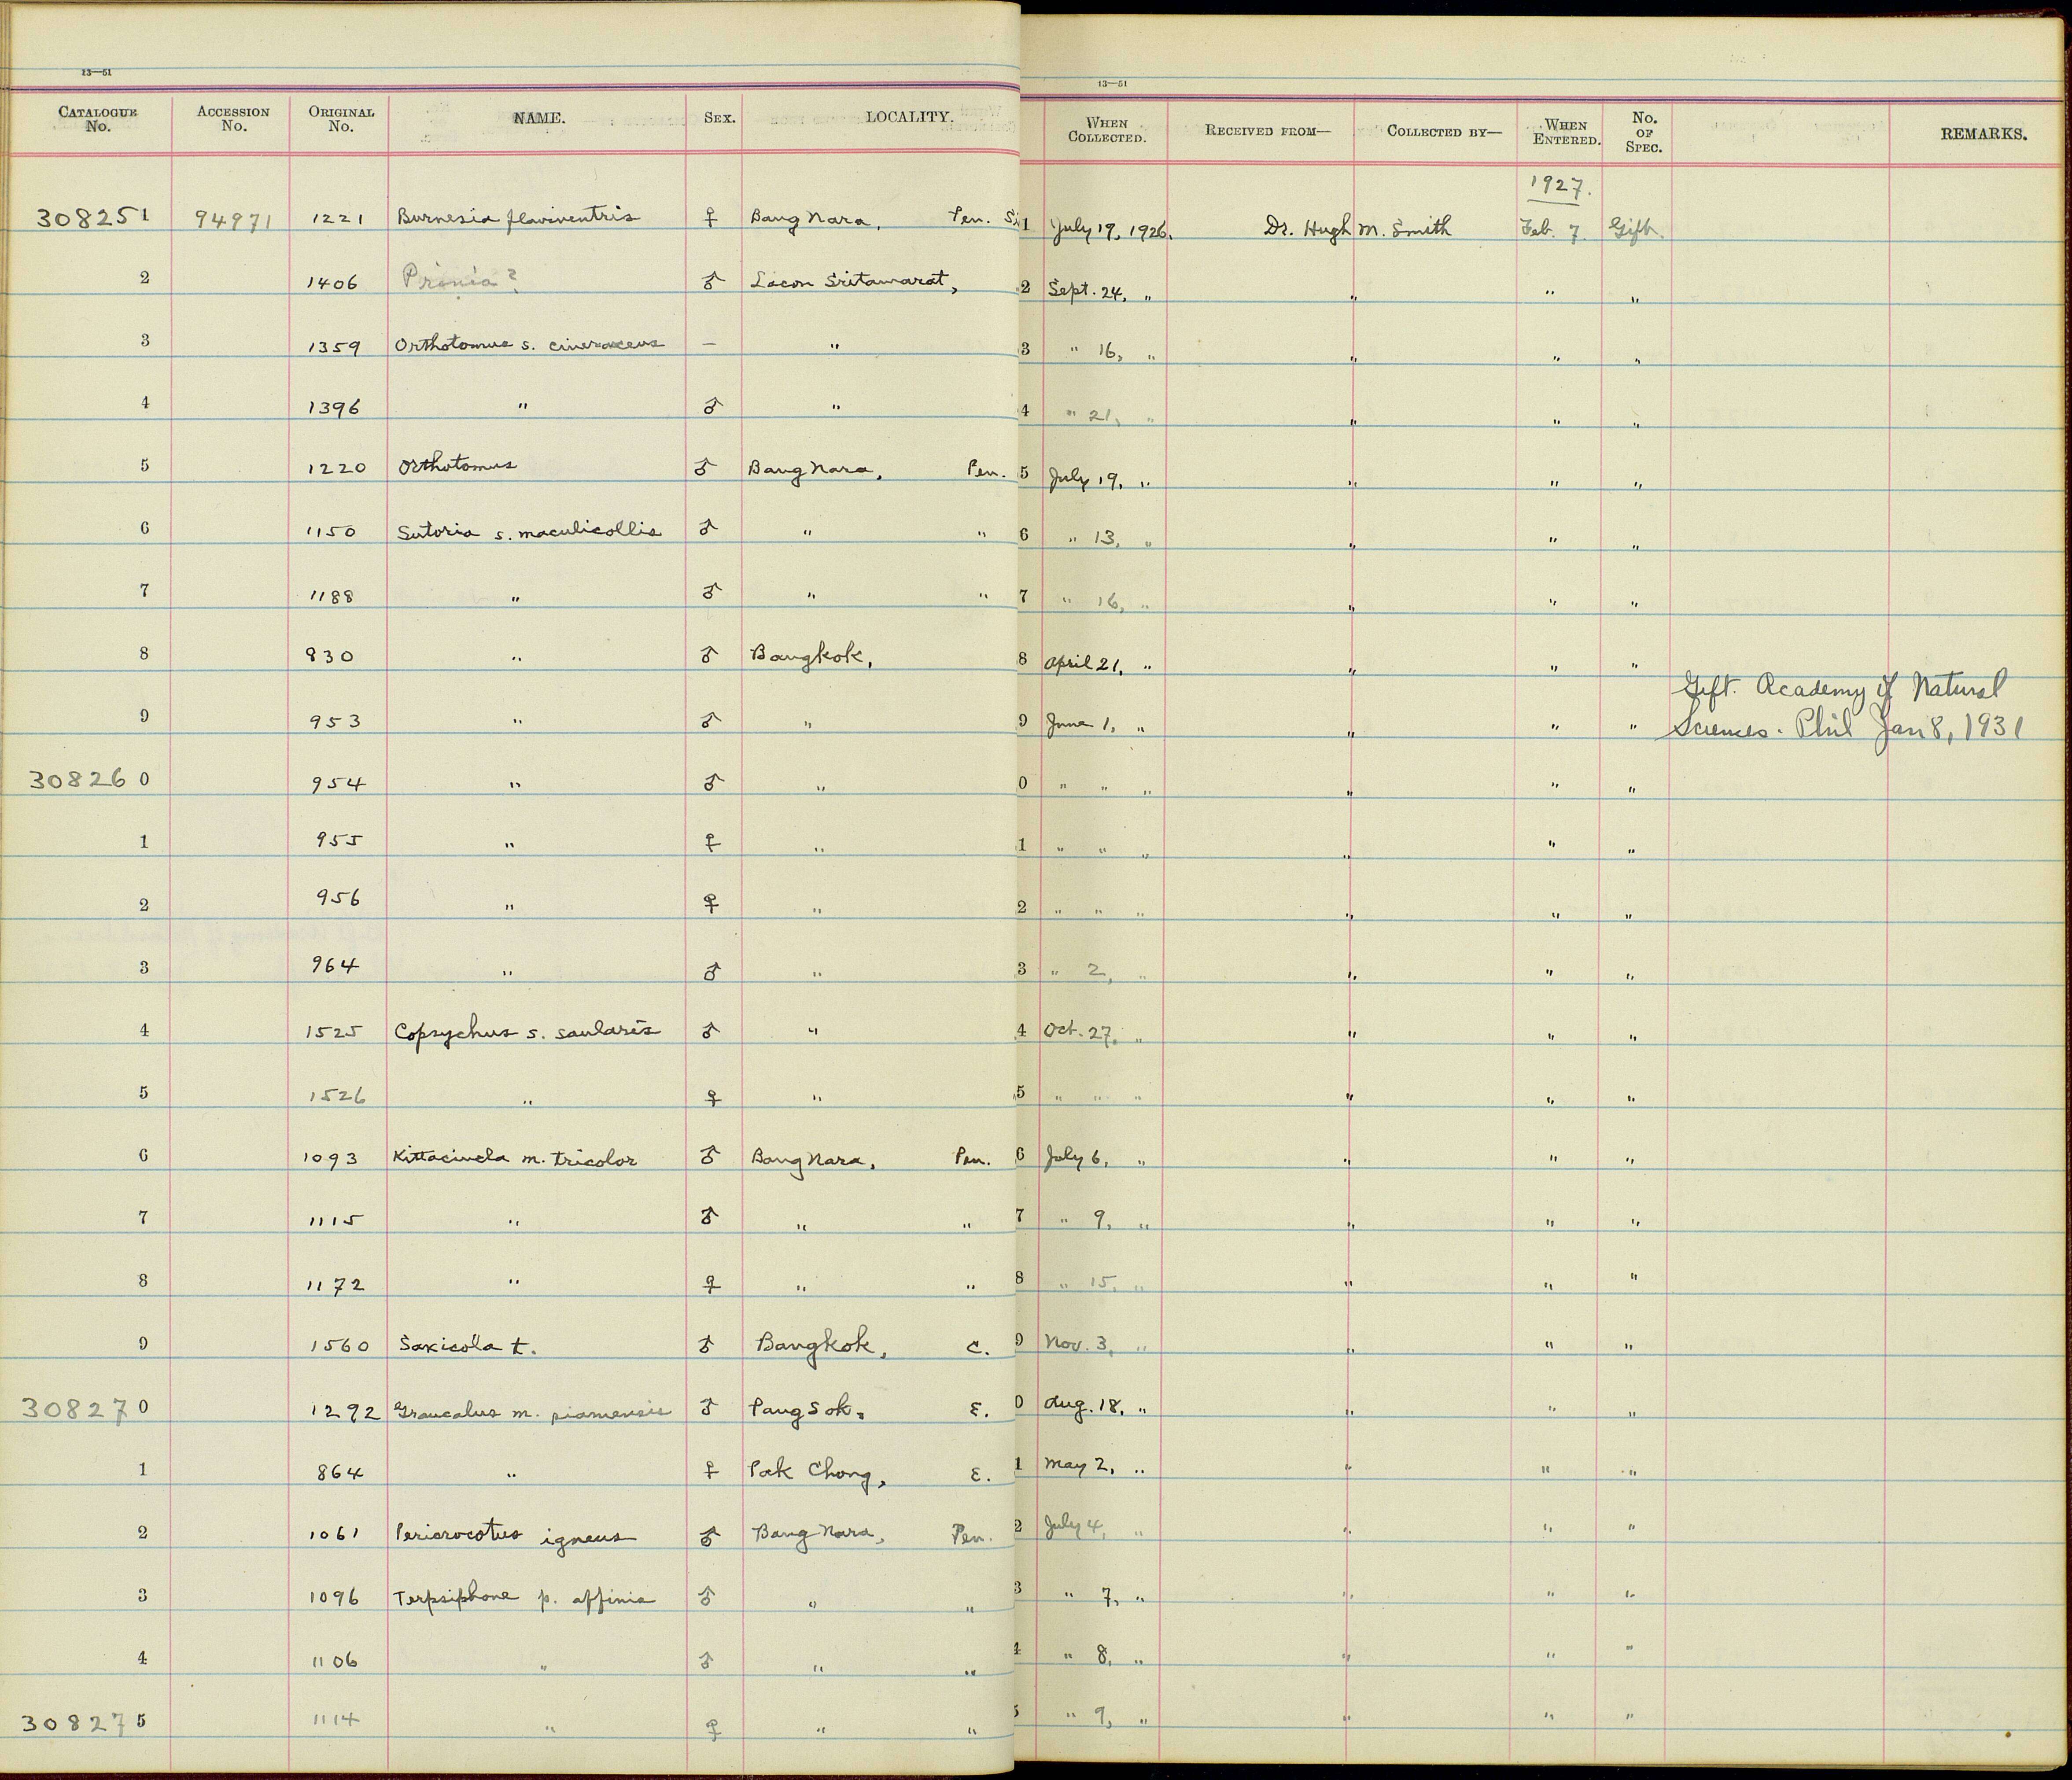 13—51
13—51
CATALOGUE No. ACCESSION No. ORIGINAL No. NAME. SEX. LOCALITY. WHEN COLLECTED. RECEIVED FROM— COLLECTED BY— WHEN ENTERED. No. OF SPEC. REMARKS.
1927.
308251 94971 1221 Burnesia flaviventris ♀ Bang Nara, Pen. Si 1 July 19, 1926. Dr. Hugh M. Smith Feb. 7. Gift.
2 1406 Prinia? ♂ Lacon Sritamarat, 2 Sept. 24, " " " "
3 1359 Orthotomus s. cineraceus — " 3 " 16, " " " "
4 1396 " ♂ " 4 " 21, " " " "
5 1220 Orthotomus ♂ Bang Nara, Pen. 5 July 19, " " " "
6 1150 Sutoria s. maculicollis ♂ " " 6 " 13, " " " "
7 1188 " ♂ " " 7 " 16, " " " "
8 930 " ♂ Bangkok, 8 April 21, " " " "
9 953 " ♂ " 9 June 1, " " " " Gift. Academy of Natural
Sciences. Phil Jan 8, 1931
308260 954 " ♂ " 0 " " " " " "
1 955 " ♀ " 1 " " " " " "
2 956 " ♀ " 2 " " " " " "
3 964 " ♂ " 3 " 2, " " " "
4 1525 Copsychus s. saularis ♂ " 4 Oct. 27, " " " "
5 1526 " ♀ " 5 " " " " " "
6 1093 Kittacincla m. tricolor ♂ Bang Nara, Pen. 6 July 6, " " " "
7 1115 " ♂ " " 7 " 9, " " " "
8 1172 " ♀ " " 8 " 15, " " " "
9 1560 Saxicola t. ♂ Bangkok, C. 9 Nov. 3, " " " "
308270 1292 Graucalus m. siamensis ♂ Pang Sok, E. 0 Aug. 18, " " " "
1 864 " ♀ Pak Chong, E. 1 May 2, " " " "
2 1061 Pericrocotus igneus ♂ Bang Nara, Pen. 2 July 4, " " " "
3 1096 Terpsiphone p. affinis ♂ " " 3 " 7, " " " "
4 1106 " ♂ " " 4 " 8, " " " "
308275 1114 " ♀ " " 5 " 9, " " " "